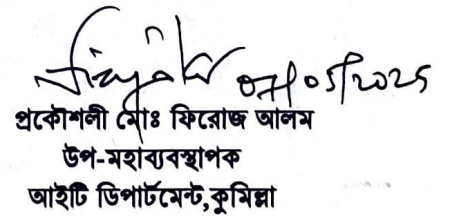 07/05/2025
প্রকৌশলী মোঃ ফিরোজ আলম
উপ-মহাব্যবস্থাপক
আইটি ডিপার্টমেন্ট,কুমিল্লা